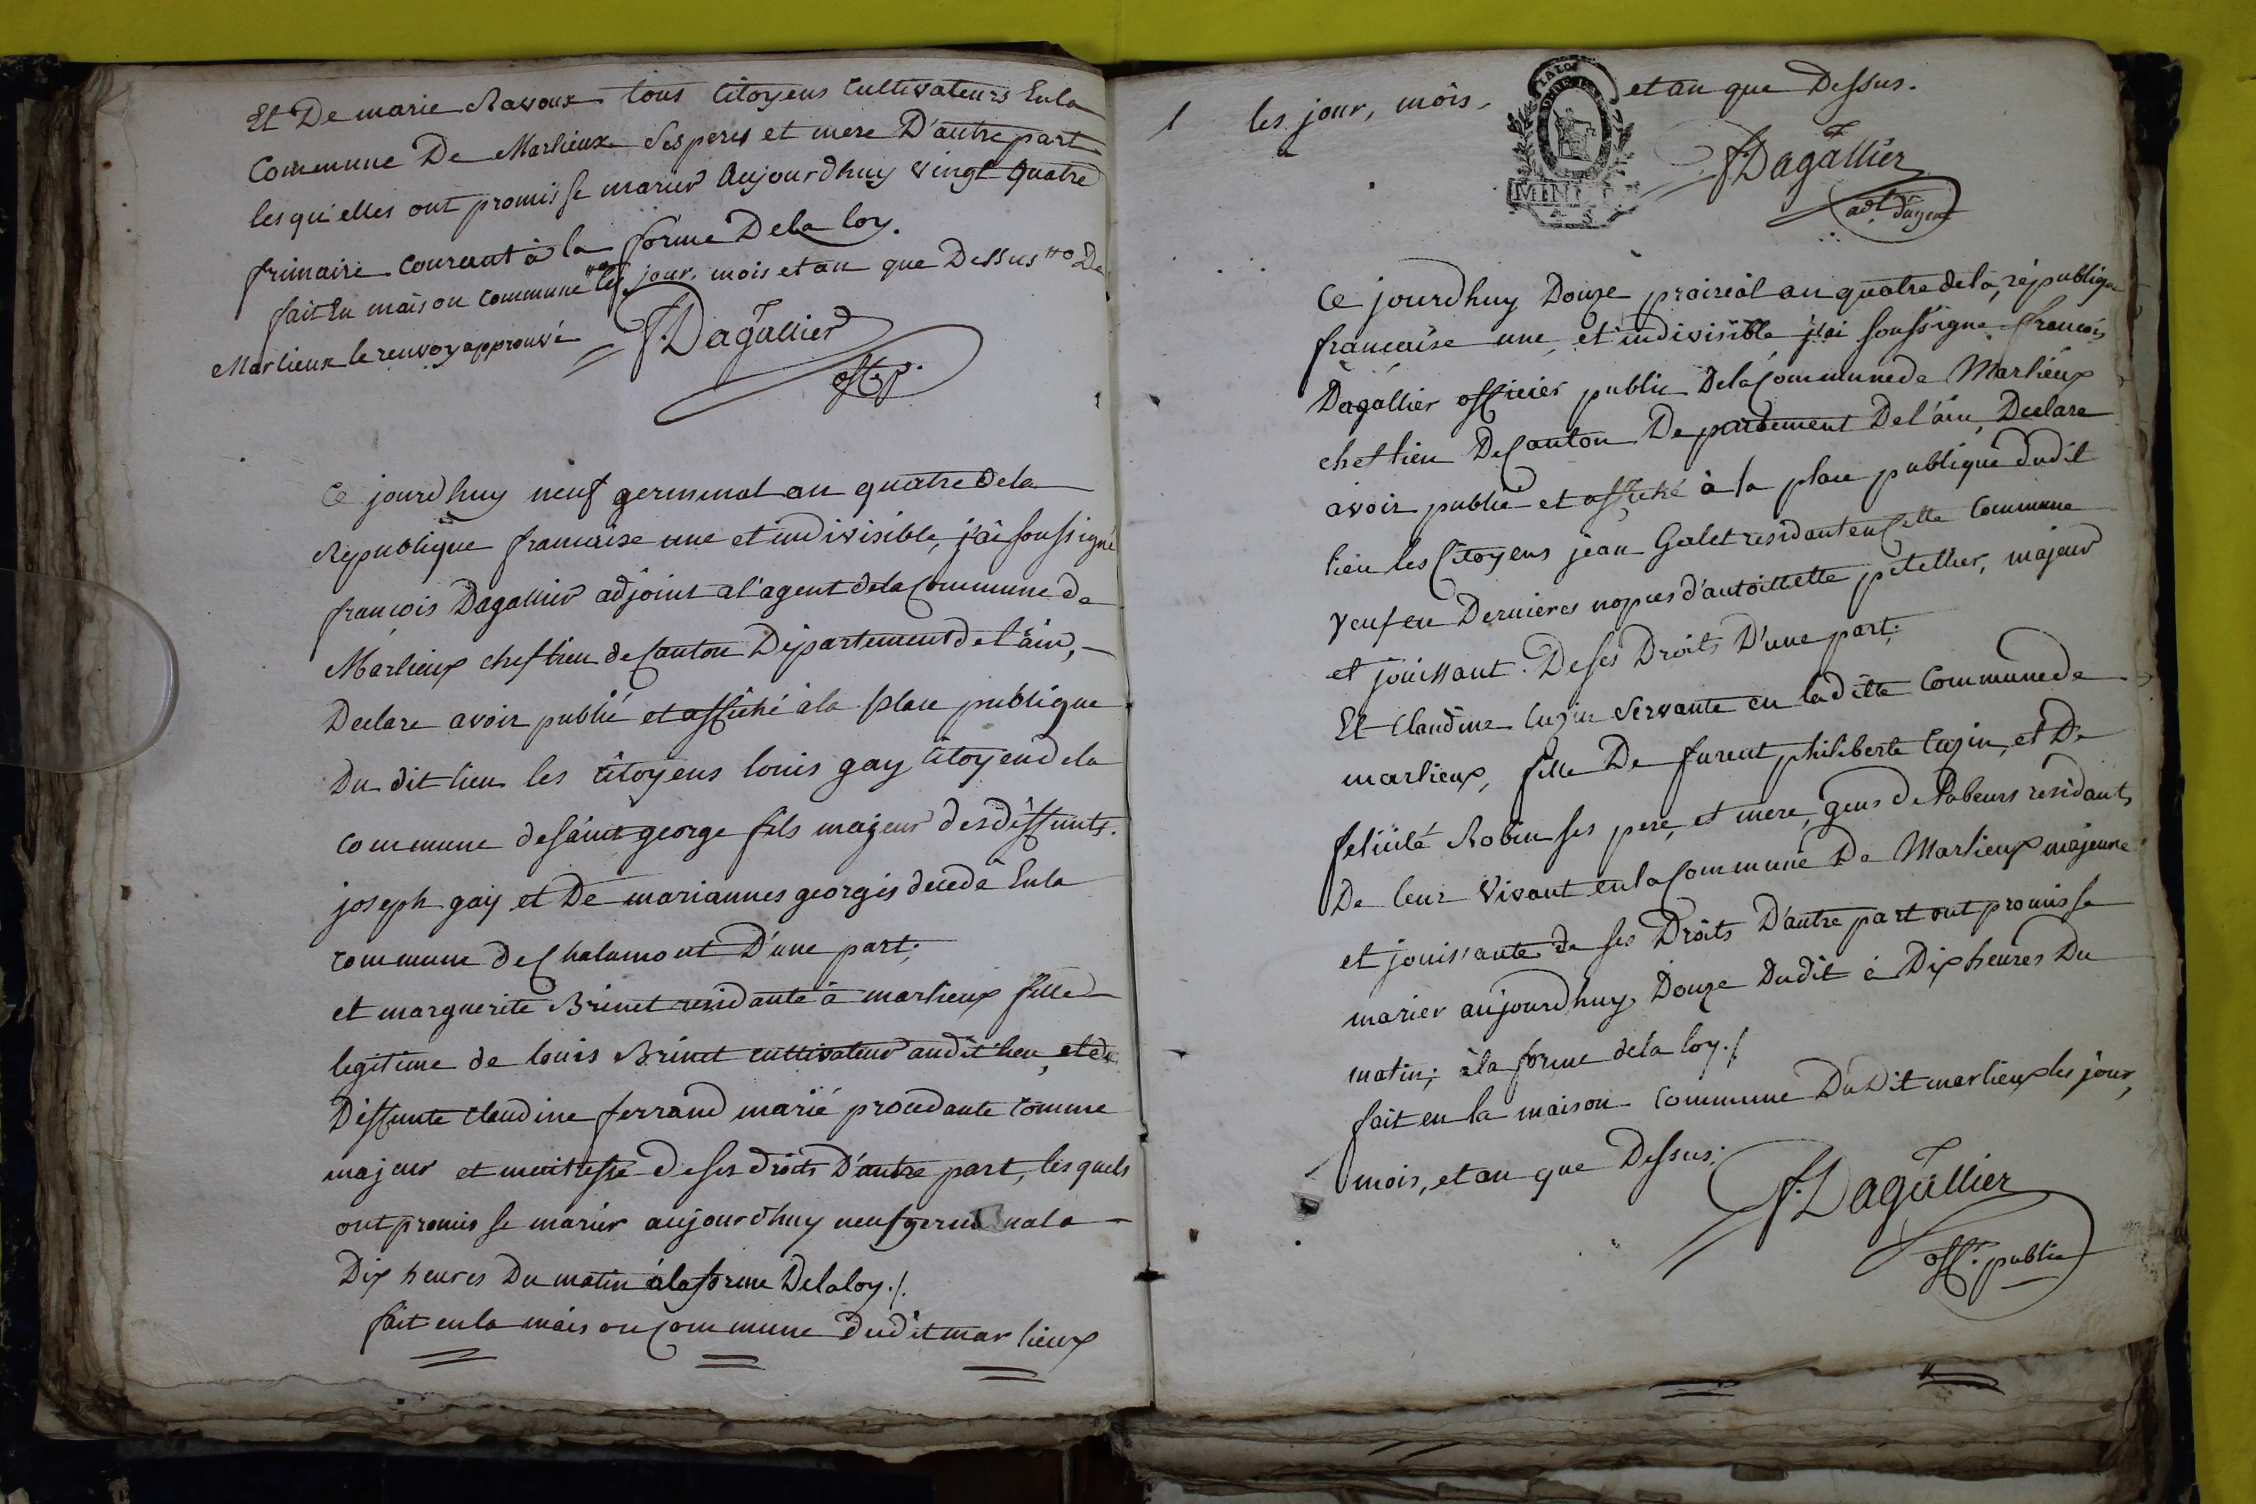 Et De marie Ravoux tous Citoyens Cultivateurs En la
Commune De Marlieux Ses peres et mere D'autre part
les qu'elles ont promis se marier Aujourdhuy vingt quatre
frimaire courant à la forme De la loy.
fait En maison commune les jour, mois et an que Dessus De
Marlieux le renvoy approuvé
F. Dagallier
off. p.
Ce jourdhuy neuf germinal an quatre de la
Republique francaise une et indivisible, j'ai soussigné
françois Dagallier adjoint a l'agent de la Commune de
Marlieux chef lieu de Canton Département de l'ain,
Declare avoir publié et affiché à la place publique
Du dit lieu les citoyens louis gay citoyen de la
commune de saint george fils majeur des deffunts
joseph gay et De mariannes georgis decedé En la
commune de Chalamont D'une part;
et marguerite Brinet residante à marlieux fille
legitime de louis Brinet cultivateur au dit lieu, et de
Deffunte claudine ferrand marié procedante comme
majeur et maitresse de ses droits D'autre part, les quels
ont promis se marier aujourdhuy neuf germinal a
Dix heures Du matin à la forme De la loy./.
fait en la maison Commune du dit marlieux
1 les jour, mois, et an que Dessus.
F. Dagallier
adt. d'agent
Ce jourdhuy Douze prairéal an quatre de la république
francaise une, et indivisible j'ai soussigné françois
Dagallier officier public De la Commune de Marlieux
chef lieu De Canton Departement De l'ain, Declare
avoir publié et affiché à la place publique du dit
lieu les Citoyens jean Galet residant en Cette Commune
veuf en Dernieres nopces d'antoillette petellier, majeur
et jouissant De ses Droits D'une part;
Et Claudine Cuzin Servante en la ditte Commune de
marlieux, fille De furent philiberte Cuzin, et De
felicité Robin ses pere, et mere, gens de labeurs residants
De leur Vivant en la Commune De Marlieux majeure
et jouissante de ses Droits D'autre part ont promis se
marier aujourdhuy Douze Dudit à Dix heures Du
matin; à la forme de la loy./.
fait en la maison Commune Du Dit marlieux les jour,
mois, et an que Dessus;
F. Dagallier
off. public